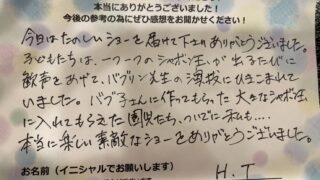 本当にありがとうございました!
今後の参考の為にぜひ感想をお聞かせください!
今日はたのしいショーを届けて下さりありがとうございました。
子どもたちは、一つ一つのシャボン玉が出るたびに
歓声をあげて、バブリン先生の演技にひきこまれて
いました。バブ子さんに作ってもらった大きなシャボン玉
に入れてもらえた園児たち、ついでに私も....
本当に楽しい素敵なショーをありがとうございました。
お名前(イニシャルでお願いします)
H.T